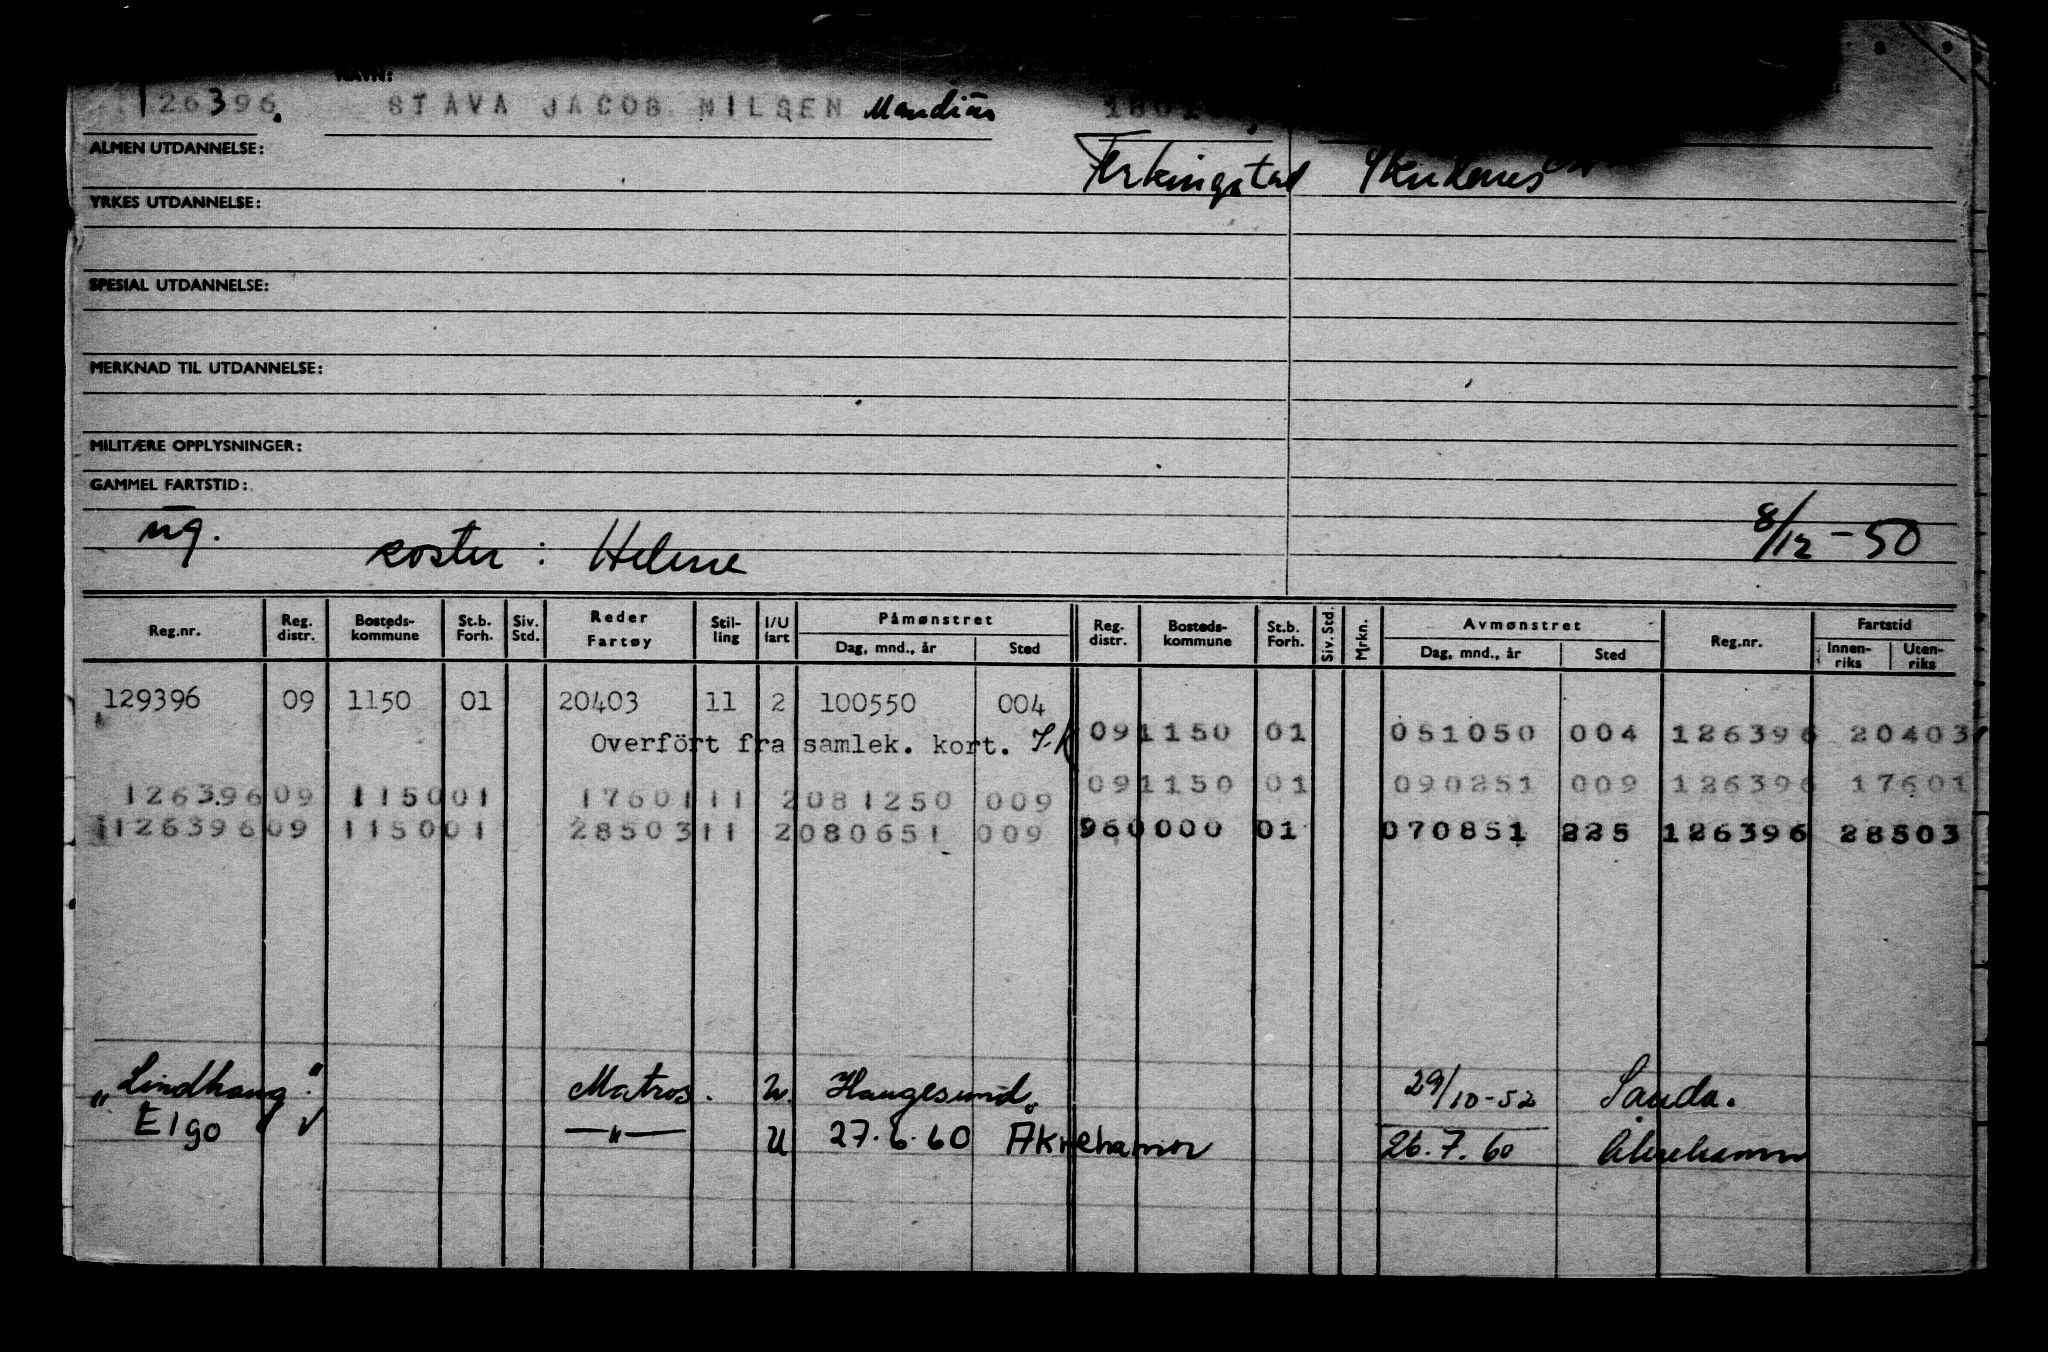 NAVN:
126396. STAVA JACOB NILSEN
ALMEN UTDANNELSE:
Ferkingstad Skudenes
YRKES UTDANNELSE:
SPESIAL UTDANNELSE:
MERKNAD TIL UTDANNELSE:
MILITÆRE OPPLYSNINGER:
GAMMEL FARTSTID:
ug. koster : Helene 8/12 - 50
Reg.nr. Reg. distr. Bosteds-kommune St.b. Forh. Siv. Std. Reder Fartøy Stil-ling I/U fart Påmønstret Dag, mnd., år Sted Reg. distr. Bosteds-kommune St.b. Forh. Siv. Std. Mrkn. Avmønstret Dag, mnd., år Sted Reg.nr. Fartstid Innen-riks Uten-riks
129396 09 1150 01 20403 11 2 100550 004
Overført fra samlek. kort. 091150 01 051050 004 126396 20403
091150 01 090251 009 126396 17601
126396 09 1150 01 17601 11 2 081250 009
126396 09 1150 01 28503 11 2 080651 009 960000 01 070851 225 126396 28503
"Lindhaug". Matros. U. Haugesund. 29/10-52 Sauda.
Elgo √ —"— U 27.6.60 Åkrehamn 26.7.60 Åkrehamn